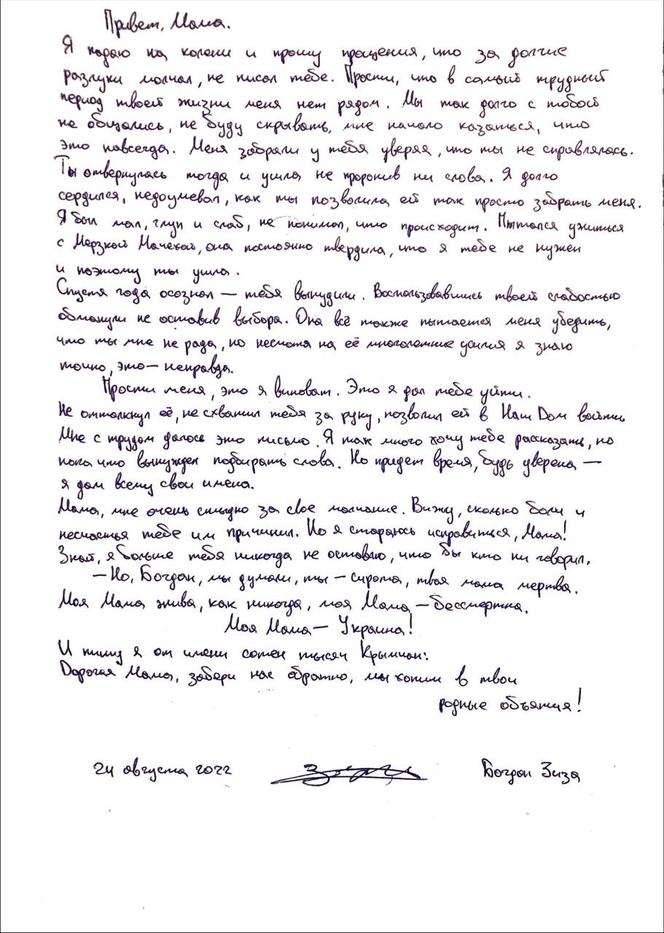 Привет, Мама.
Я падаю на колени и прошу прощения, что за долгие
разлуки молчал, не писал тебе. Прости, что в самый трудный
период твоей жизни меня нет рядом. Мы так долго с тобой
не общались, не буду скрывать, мне начало казаться, что
это навсегда. Меня забрали у тебя уверяя, что ты не справлялась.
Ты отвернулась тогда и ушла не проронив ни слова. Я долго
сердился, недоумевал, как ты позволила ей так просто забрать меня.
Я был мал, глуп и слаб, не понимал, что происходит. Пытался ужиться
с Мерзкой Мачехой, она постоянно твердила, что я тебе не нужен
и поэтому ты ушла.
Спустя года осознал — тебя вынудили. Воспользовавшись твоей слабостью
обманули не оставив выбора. Она всё также пытается меня убедить,
что ты мне не рада, но несмотя на её многолетние усилия я знаю
точно, это — неправда.
Прости меня, это я виноват. Это я дал тебе уйти.
Не оттолкнул её, не схватил тебя за руку, позволил ей в Наш Дом войти
Мне с трудом далось это письмо. Я так много хочу тебе рассказать, но
пока что вынужден подбирать слова. Но придет время, будь уверена —
я дам всему свои имена.
Мама, мне очень стыдно за свое молчание. Вижу, сколько боли и
несчастья тебе им причинил. Но я стараюсь исправиться, Мама!
Знай, я больше тебя никогда не оставлю, что бы кто ни говорил.
— Но, Богдан, мы думали, ты — сирота, твоя мама мертва.
Моя Мама жива, как никогда, моя Мама — бессмертна.
Моя Мама — Украина!
И пишу я от имени сотен тысяч Крымчан:
Дорогая Мама, забери нас обратно, мы хотим в твои
родные объятия!
24 августа 2022 Богдан Зиза